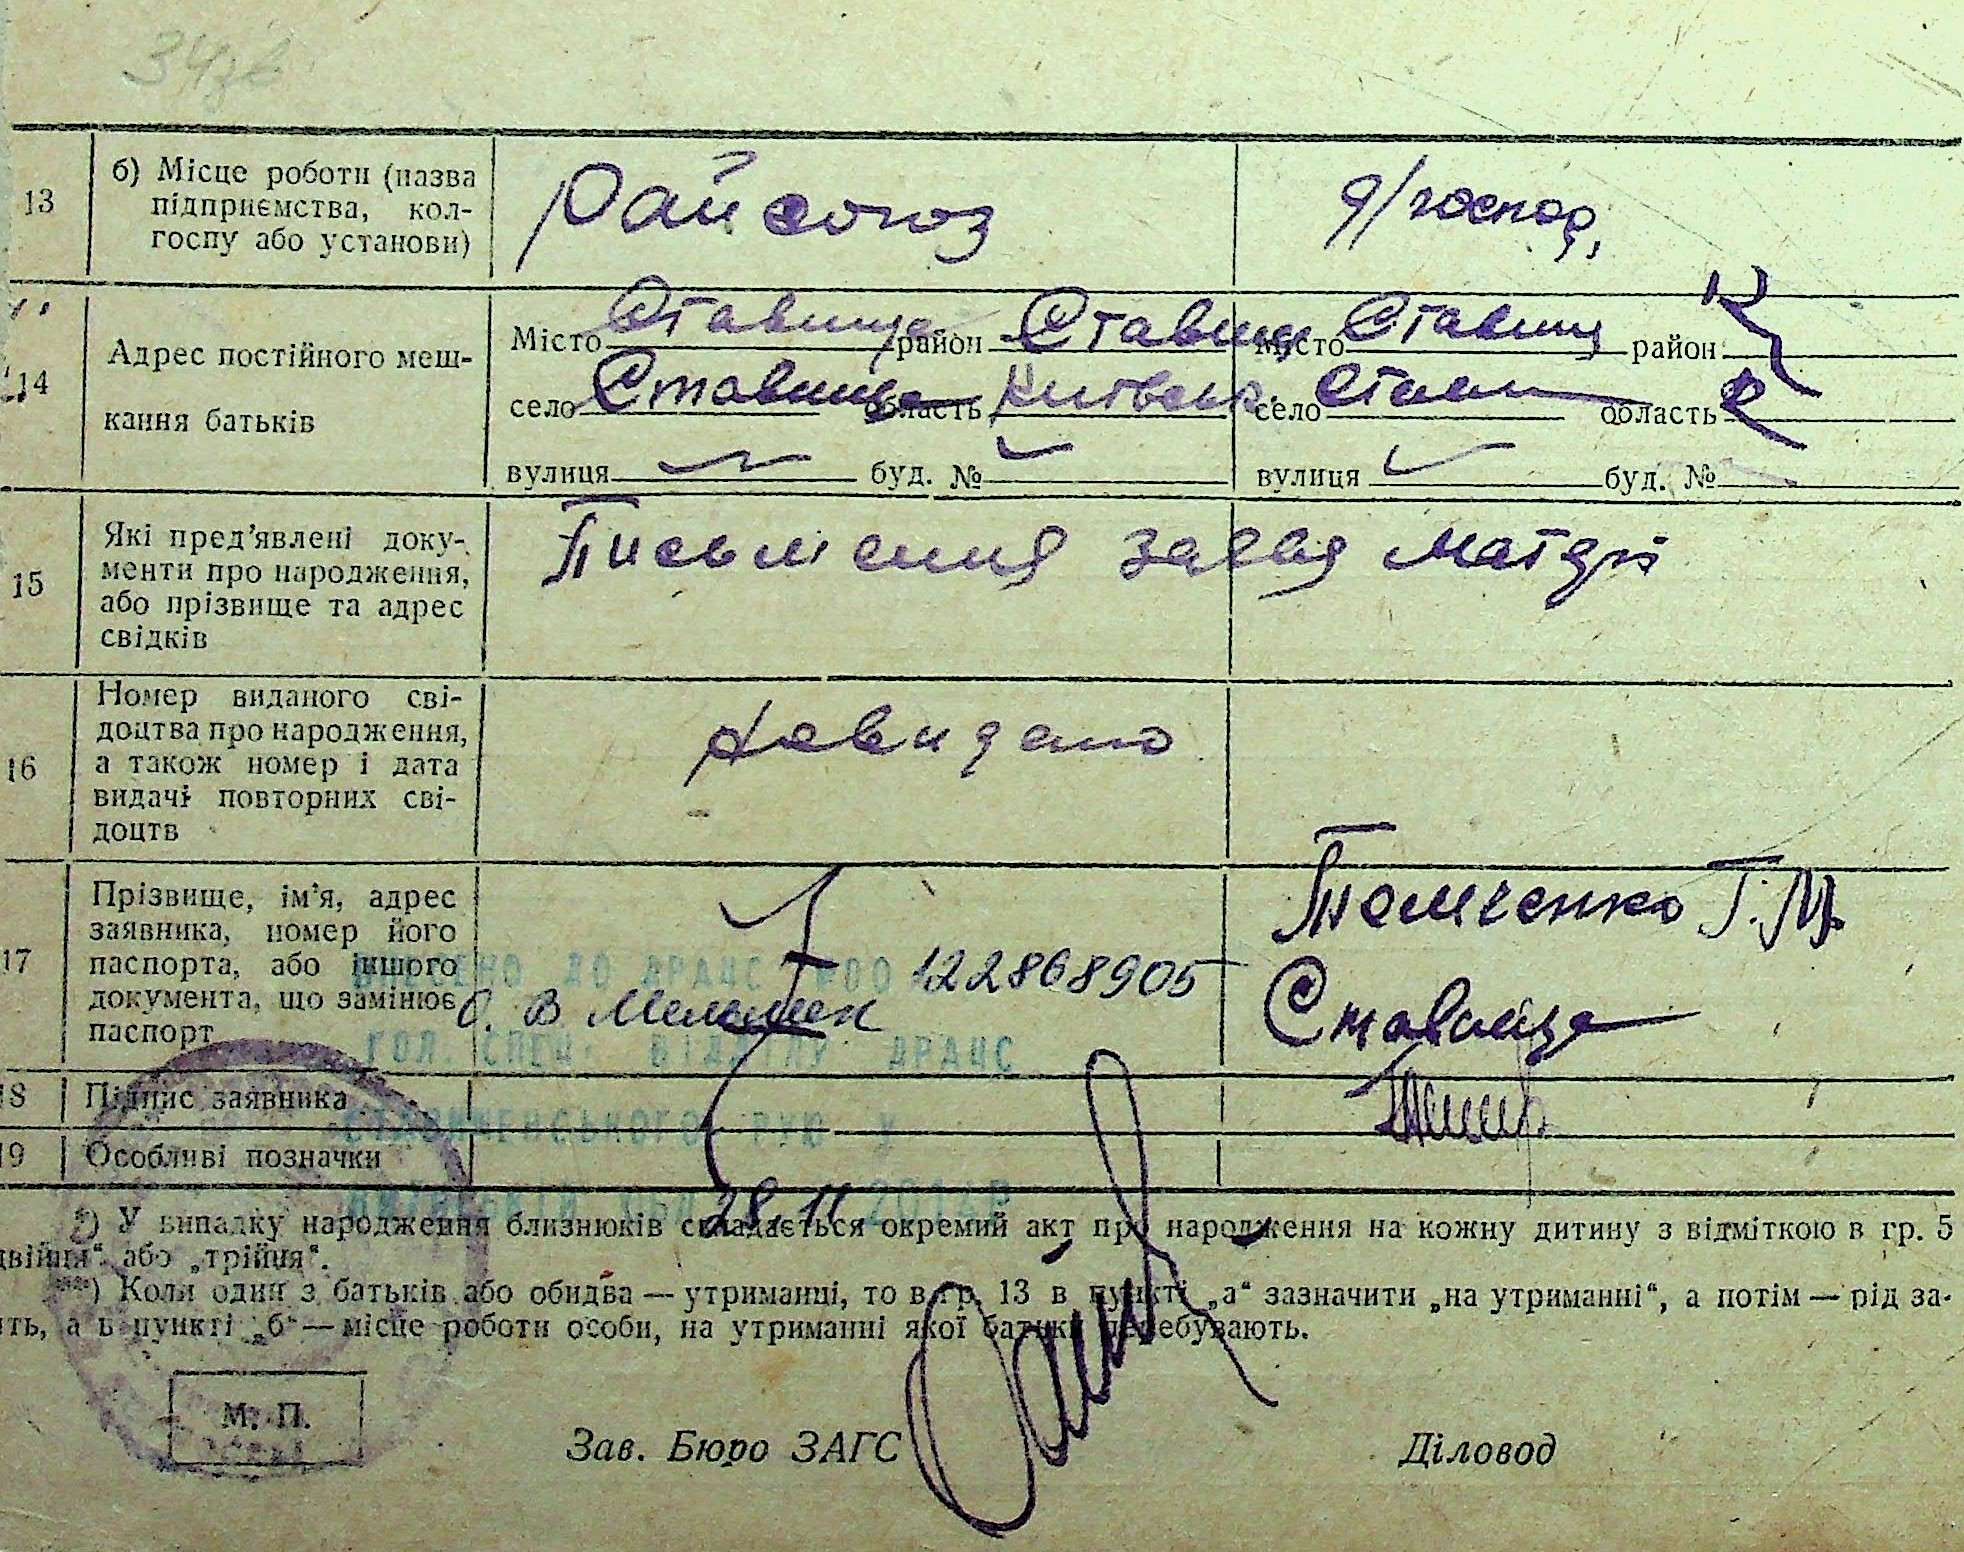 34зв
13
б) Місце роботи (назва
підприємства, кол-
госпу або установи)
Райсоюз
д/господ,
14
Адрес постійного меш-
кання батьків
Місто Ставище район Ставищ
село Ставище область Київськ.
вулиця буд. №
Місто Ставищ район
село Стави область
вулиця буд. №
15
Які пред'явлені доку-
менти про народження,
або прізвище та адрес
свідків
Письменна заява матері
16
Номер виданого сві-
доцтва про народження,
а також номер і дата
видачі повторних сві-
доцтв
17
Прізвище, ім'я, адрес
заявника, номер його
паспорта, або іншого
документа, що замінює
паспорт
Томченко Г. М.
Ставище
ВНЕСЕНО ДО ДРАЦС 00 122868905
О. В Мельник
ГОЛ. СПЕЦ. ВІДДІЛУ ДРАЦС
18
Підпис заявника
СТАВИЩЕНСЬКОГО РУЮ У
19
Особливі позначки
28.11 2014Р
*) У випадку народження близнюків складається окремий акт про народження на кожну дитину з відміткою в гр. 5
двійня“ або „трійня“.
**) Коли один з батьків або обидва — утриманці, то в гр. 13 в пункті „а“ зазначити „на утриманні“, а потім — рід за-
ть, а в пункті „б“ — місце роботи особи, на утриманні якої батьки перебувають.
М. П.
Зав. Бюро ЗАГС
Діловод